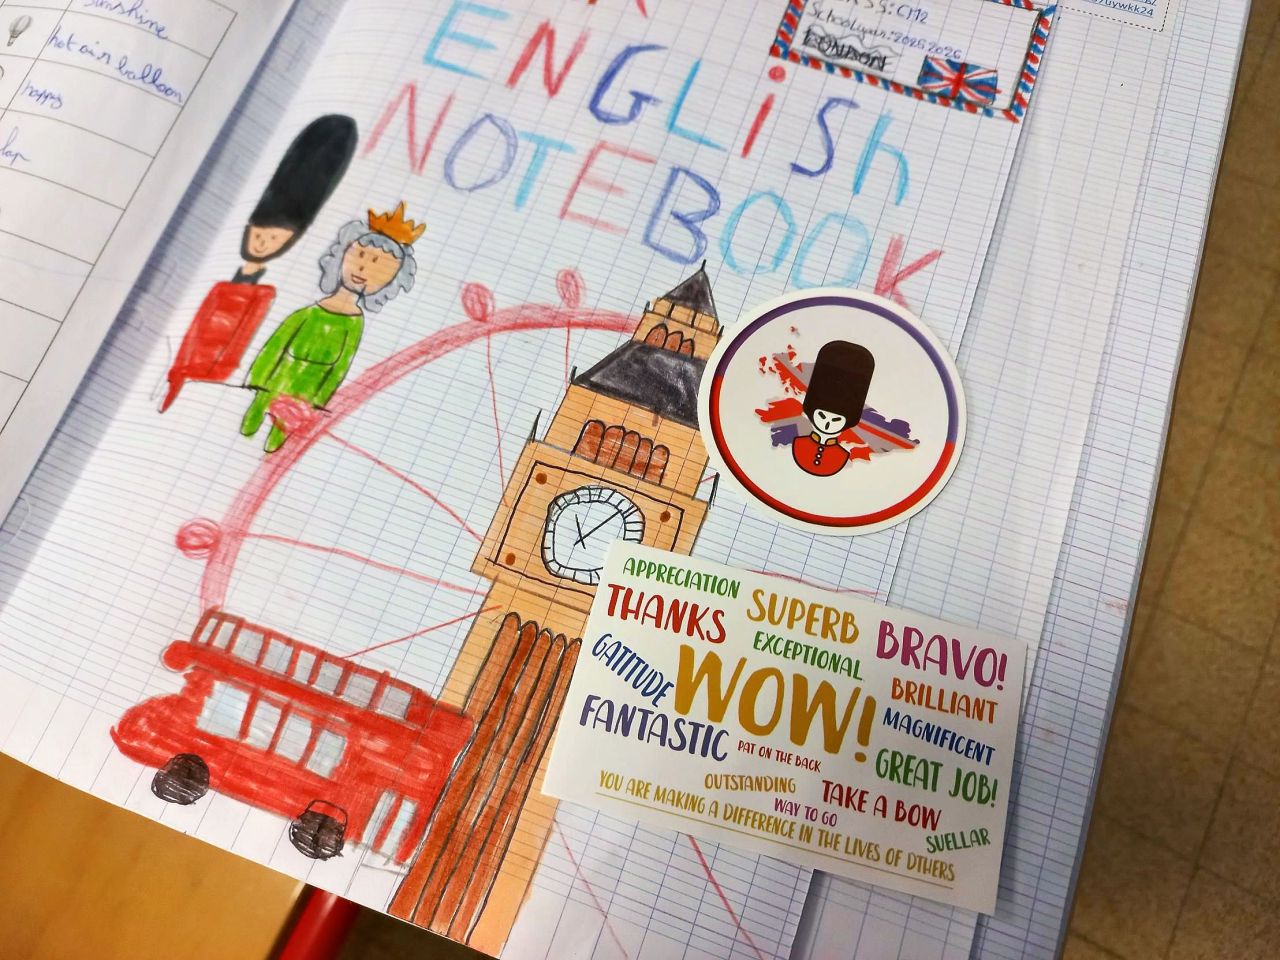 sunshine
hot air balloon
happy
ENGLiSh
NOTEBOOK
CLASS: CM2
School year: 2025 2026
LONDON
APPRECIATION
THANKS
SUPERB
BRAVO!
EXCEPTIONAL
GATITUDE
WOW!
BRILLIANT
FANTASTIC
MAGNIFICENT
PAT ON THE BACK
GREAT JOB!
OUTSTANDING
TAKE A BOW
WAY TO GO
SUELLAR
YOU ARE MAKING A DIFFERENCE IN THE LIVES OF DTHERS